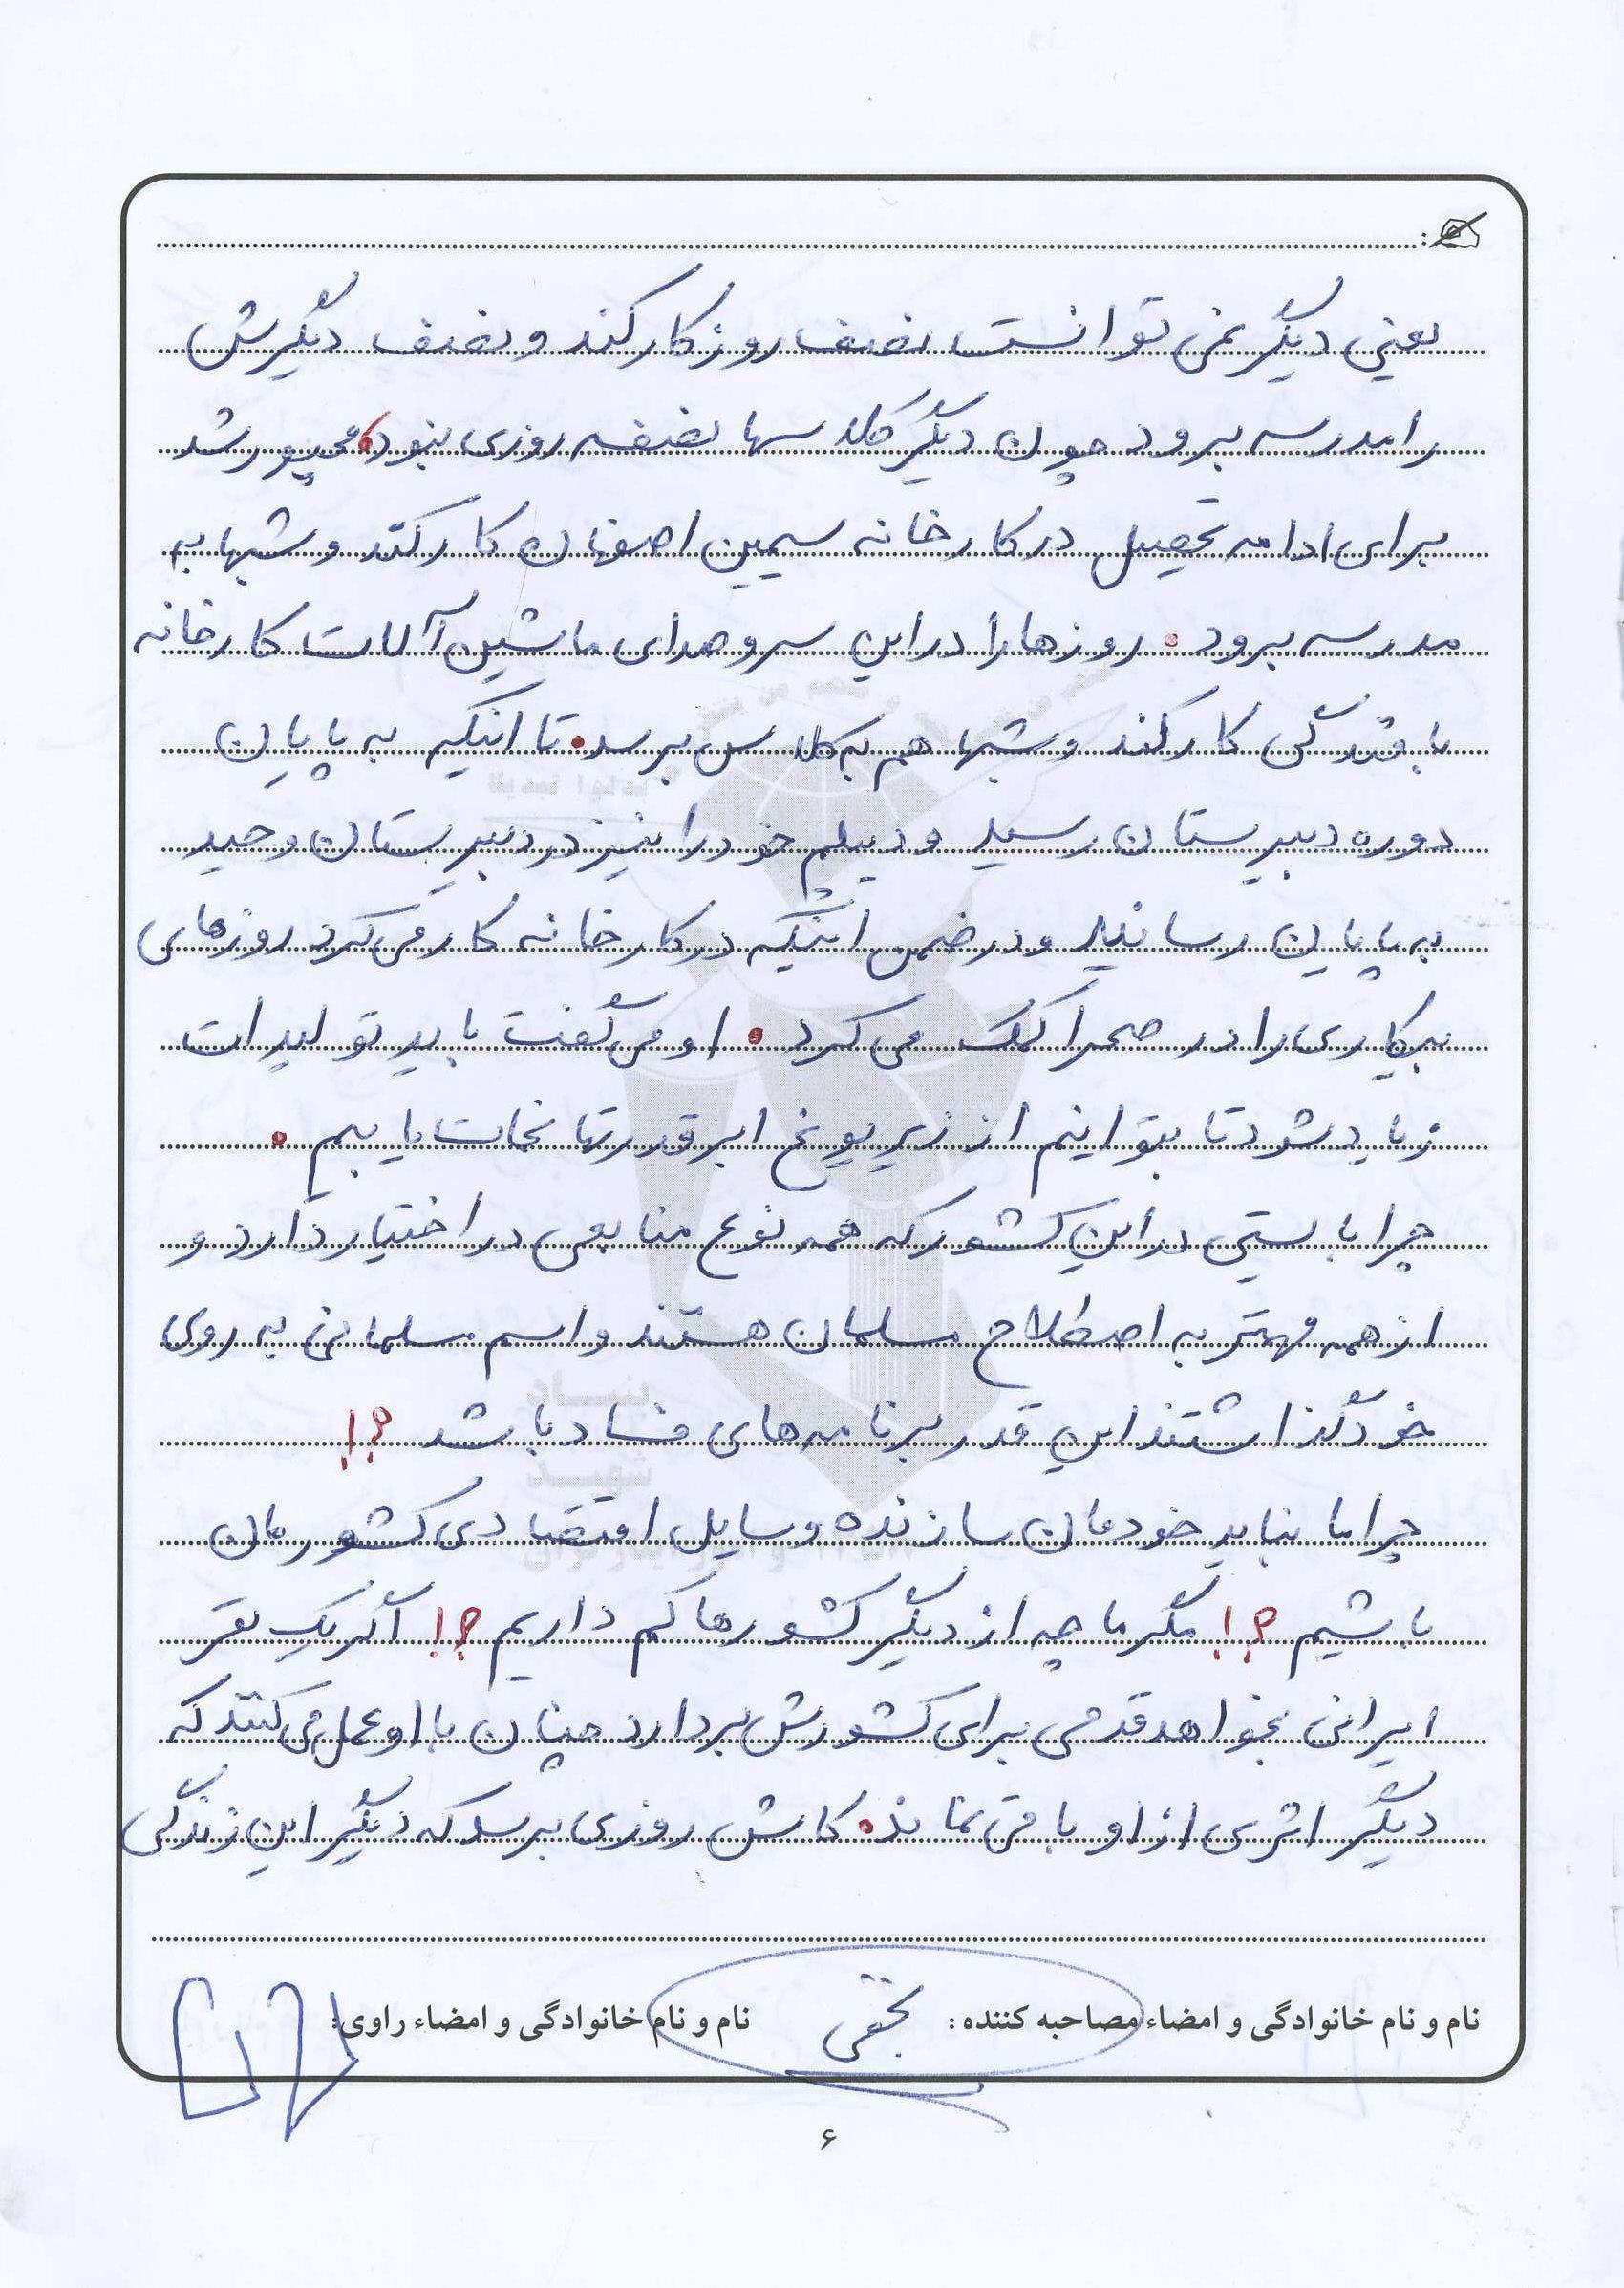 یعنی دیگر نمی توانست نصف روز کار کند و نصف دیگرش
را مدرسه برود چون دیگر کلاسها نصفه روزی نبود، مجبور شد
برای ادامه تحصیل در کارخانه سیمین اصفهان کار کند و شبها به
مدرسه برود. روزها را در این سر و صدای ماشین آلات کارخانه
با خستگی کار کند و شبها هم به کلاس برسد. تا اینکه به پایان
دوره دبیرستان رسید و دیپلم خود را نیز در دبیرستان وحید
به پایان رسانید و در ضمن اینکه در کارخانه کار می کرد روزهای
بیکاری را در صحرا کمک می کرد. او می گفت باید تولیدات
زیاد شود تا بتوانیم از زیر یوغ ابرقدرتها نجات یابیم.
چرا بایستی در این کشور که همه نوع منابعی در اختیار دارد و
از همه مهمتر به اصطلاح مسلمان هستند و اسم مسلمانی به روی
خود گذاشتند این قدر برنامه های فساد باشد ؟!
چرا ما نباید خودمان سازنده وسایل اقتصادی کشورمان
باشیم ؟! مگر ما چه از دیگر کشورها کم داریم ؟! اگر یک نفر
ایرانی بخواهد قدمی برای کشورش بردارد چنان با او عمل می کنند که
دیگر اثری از او باقی نماند. کاش روزی برسد که دیگر این زندگی
نام و نام خانوادگی و امضاء مصاحبه کننده: نام و نام خانوادگی و امضاء راوی:
۶